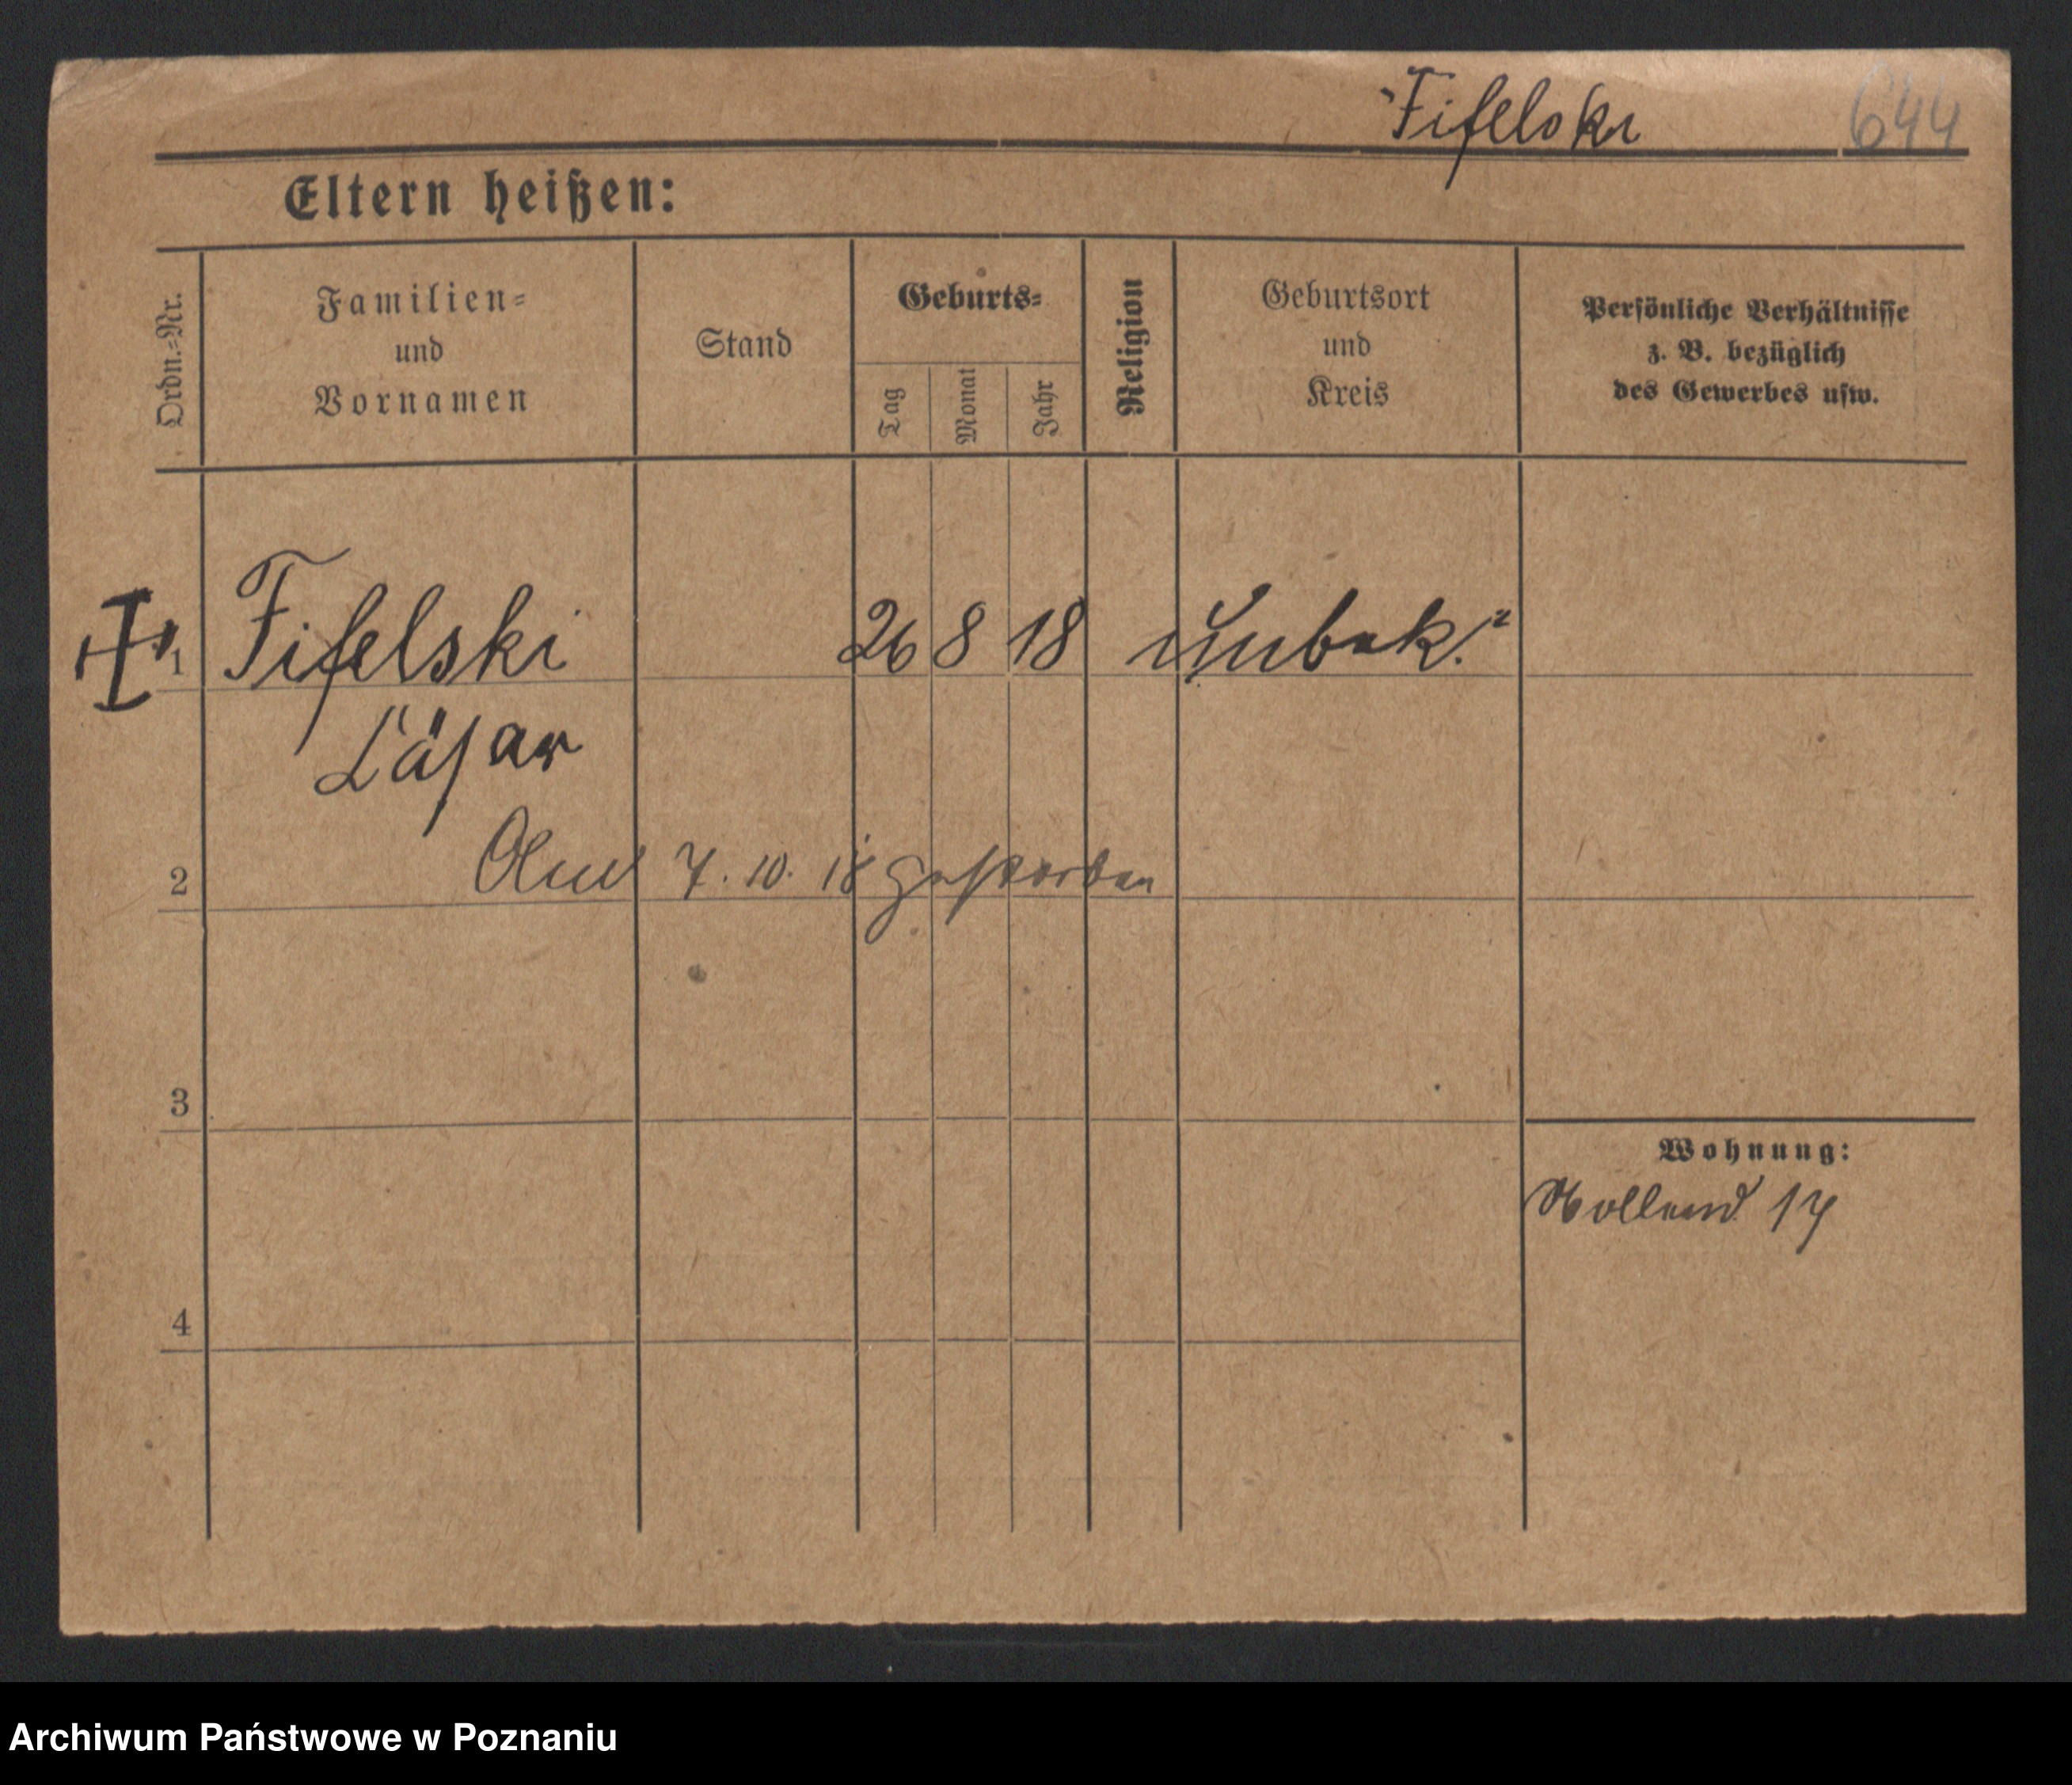 Fifelski 644
Eltern heißen:
Ordn.=Nr.
Familien=
und
Vornamen
Stand
Geburts=
Tag
Monat
Jahr
Religion
Geburtsort
und
Kreis
Persönliche Verhältnisse
z. B. bezüglich
des Gewerbes usw.
1 Fifelski 26 8 18
Cäsar
2 7. 10. 18 gestorben
3
Wohnung:
17
4
Archiwum Państwowe w Poznaniu